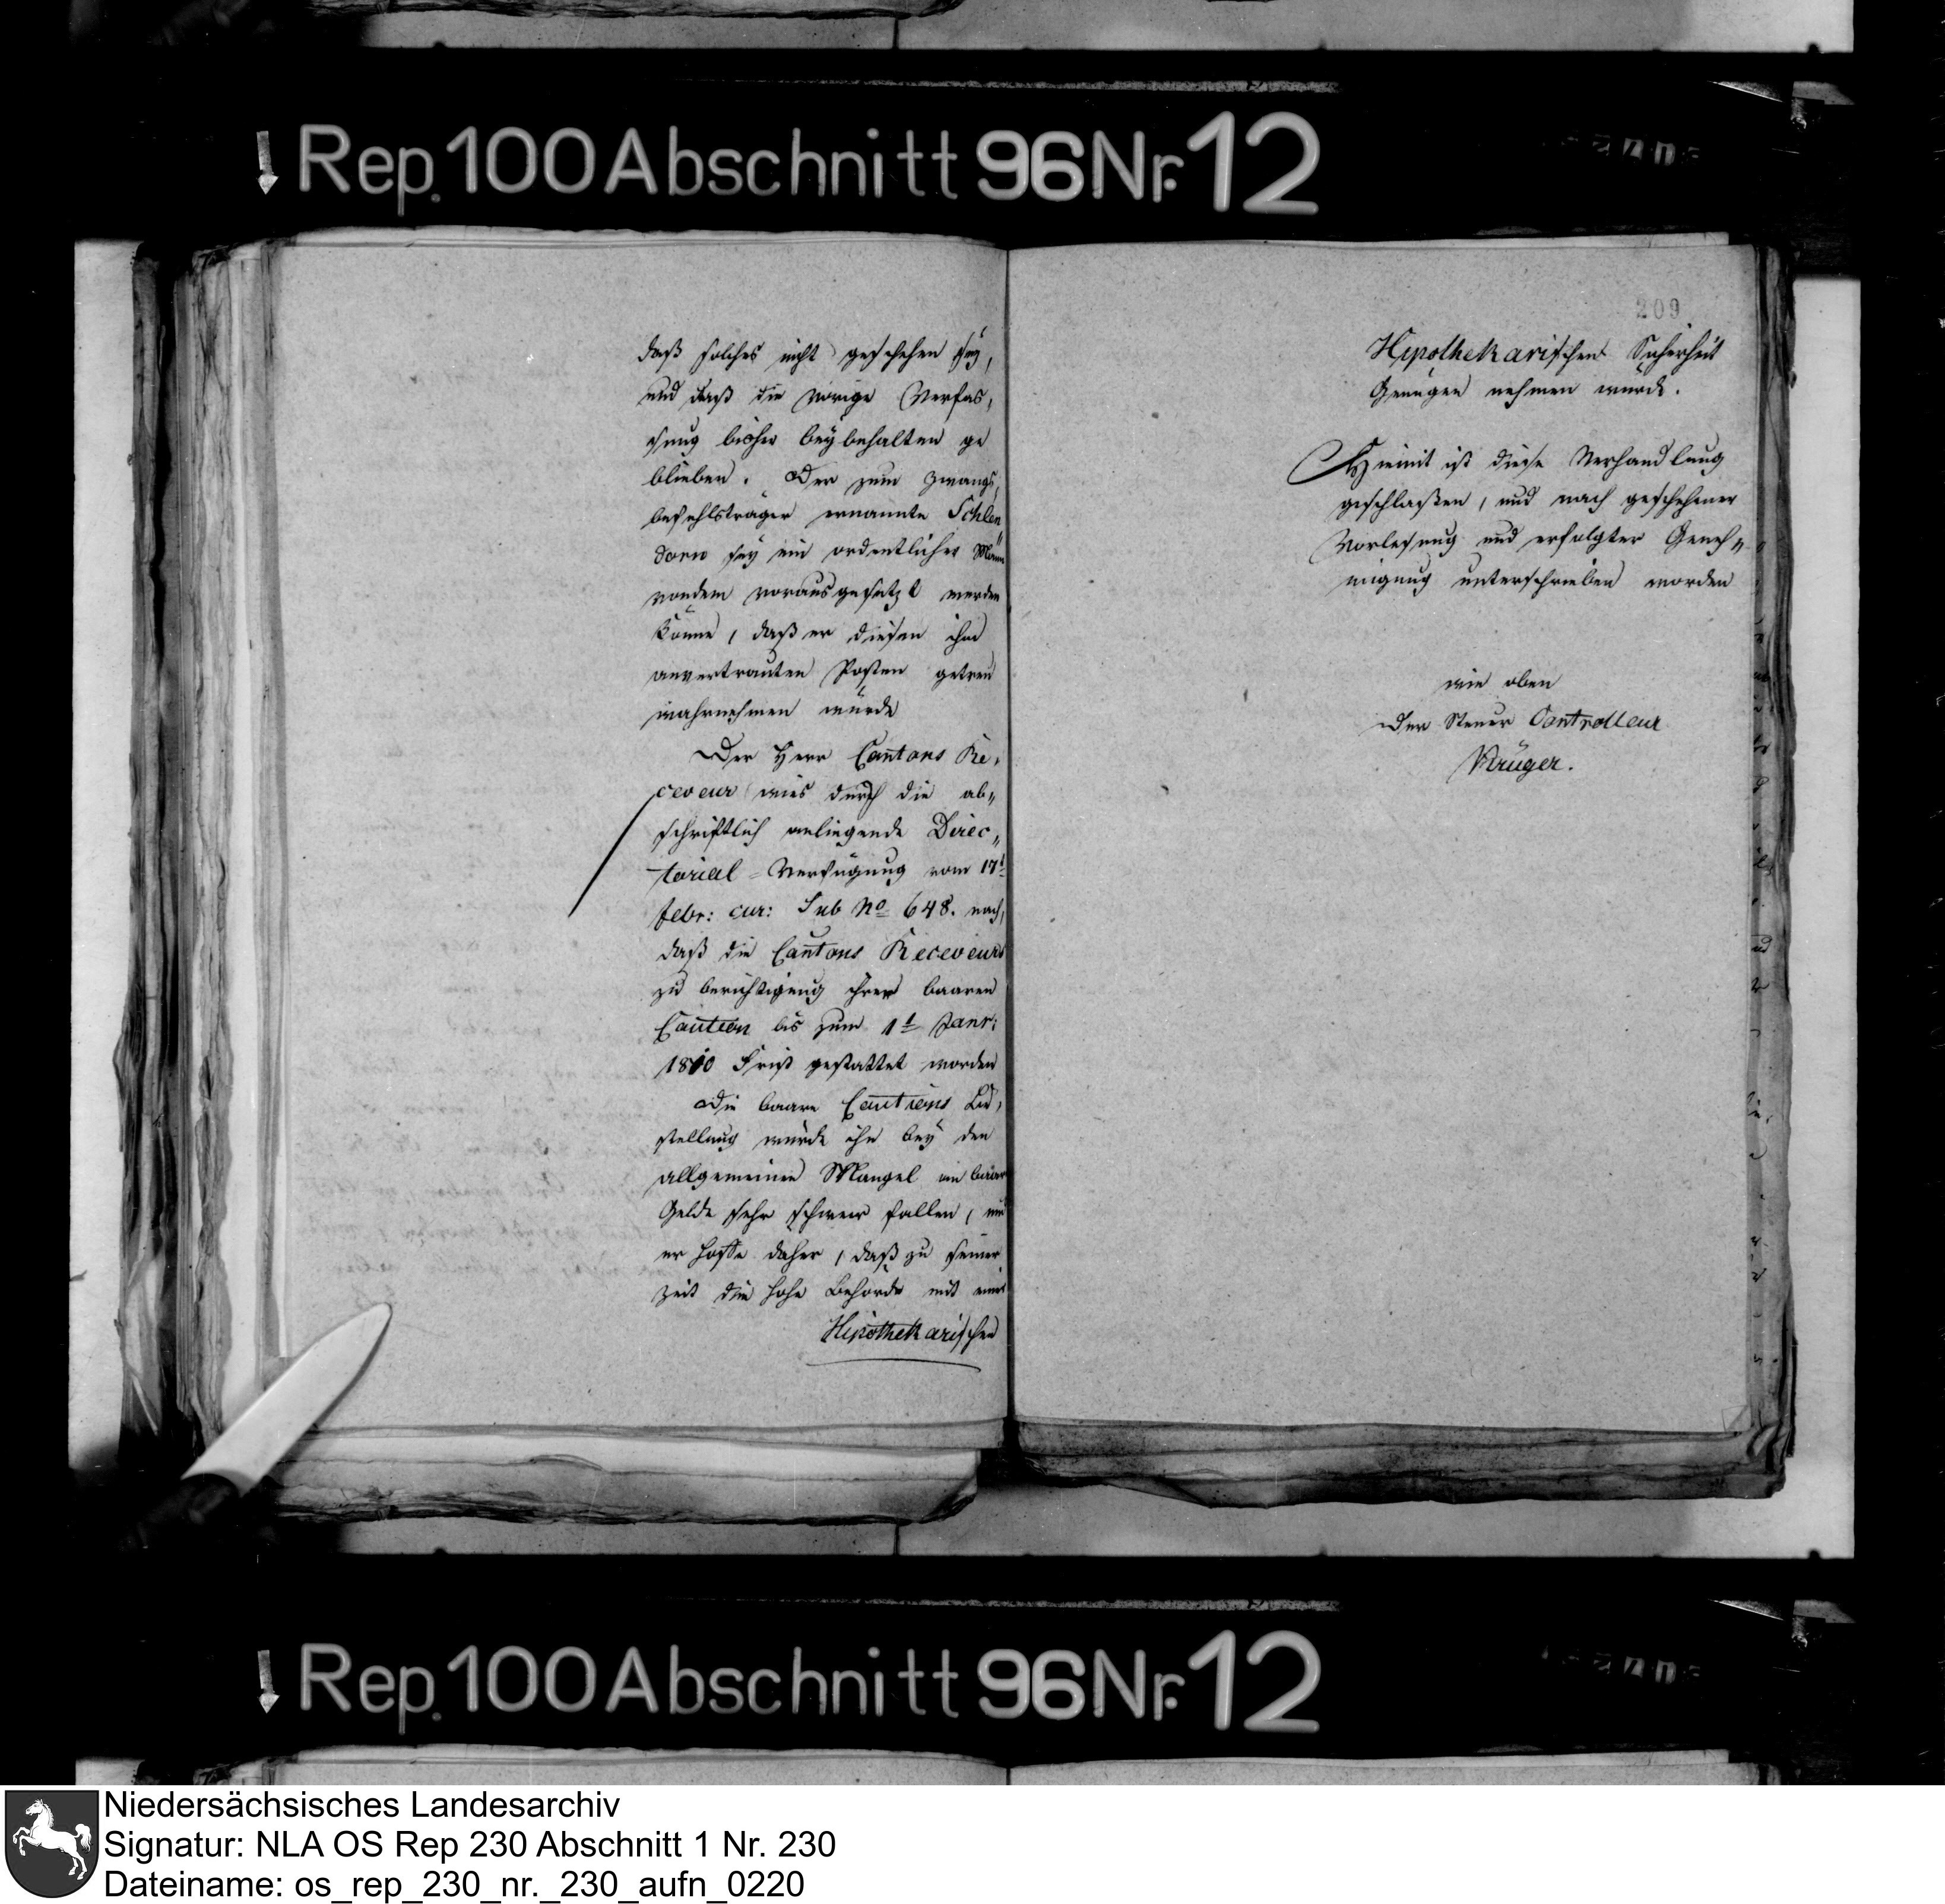 Rep. 100 Abschnitt 96 Nr. 12
daß solches nicht geschehen sey,
und daß die vorige Verfas,
sung bisher beybehalten ge
blieben. Der zum Zwangs,
befehlsträger ernannte Schlen„
dorn sey ein ordentlicher Mann
von dem vorausgesetzt werden
könne, daß er diesen ihm
anvertrauten Posten getreu
wahrnehmen würde
Der Herr Cantons Re,
ceveur wies durch die ab„
schriftlich anliegende Direc„
torial-Verfügung vom 17t
febr: cur: Sub No 648. nach,
daß die Cantons Receveurs
zu berichtigung ihrer baaren
Caution bis zum 1t Janr:
1810 Frist gestattet worden
Die baare Cautions Be,
stellung würde ihm bey den
allgemeinen Mangel an baarem
Gelde sehr schwer fallen, und
er hoffe daher, daß zu seiner
Zeit die hohe Behörde mit einer
Hipothekarischen
209
Hipothekarischen Sicherheit
Genügen nehmen würde.
Hiemit ist diese Verhandlung
geschlaßen, und nach geschehener
Vorlesung und erfolgter Geneh„
migung unterschrieben worden
wie oben
Der Steuer Controlleur
Krüger.
Rep. 100 Abschnitt 96 Nr. 12
Niedersächsisches Landesarchiv
Signatur: NLA OS Rep 230 Abschnitt 1 Nr. 230
Dateiname: os_rep_230_nr._230_aufn_0220